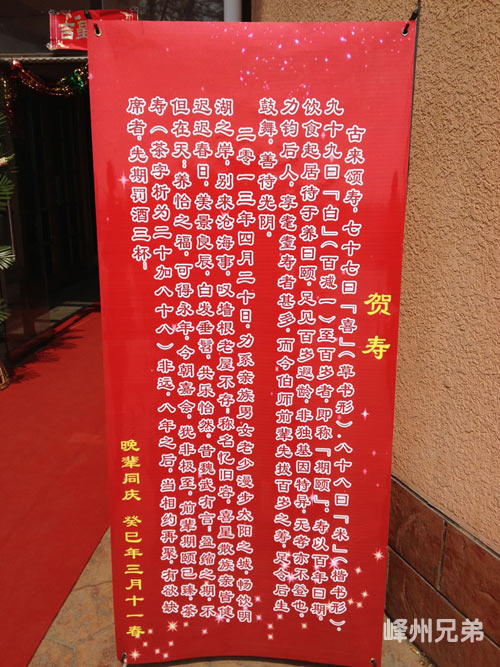 贺寿
古来颂寿，七十七曰「喜」（草书形）、八十八曰「米」（楷书形）、
九十九曰「白」（百减一）至百岁者，即称「期颐」，寿以百年曰期，
饮食起居待于养曰颐，足见百岁遐龄，非独基因特异，无孝亦不登也，
力钧后人，享耄耋寿者甚多，而今伯师前辈先拔百岁之筹，足令后生
鼓舞，善待光阴。
二零一三年四月二十日，力系亲族男女老少漫步太阳之城，畅饮明
湖之岸，别来沧海事，叹墙根老屋不存，称名忆旧容，喜星散族亲皆健，
迟迟春日，美景良辰，白发垂髫，共乐怡然，昔魏武有言，盈缩之期，不
但在天，养怡之福，可得永年，今朝嘉会，我非极至，前辈期颐已臻，茶
寿（茶字析为二十加八十八）非远，八年之后，当相约再聚，有欲缺
席者，先期罚酒三杯。
晚辈同庆 癸巳年三月十一春
峄州兄弟